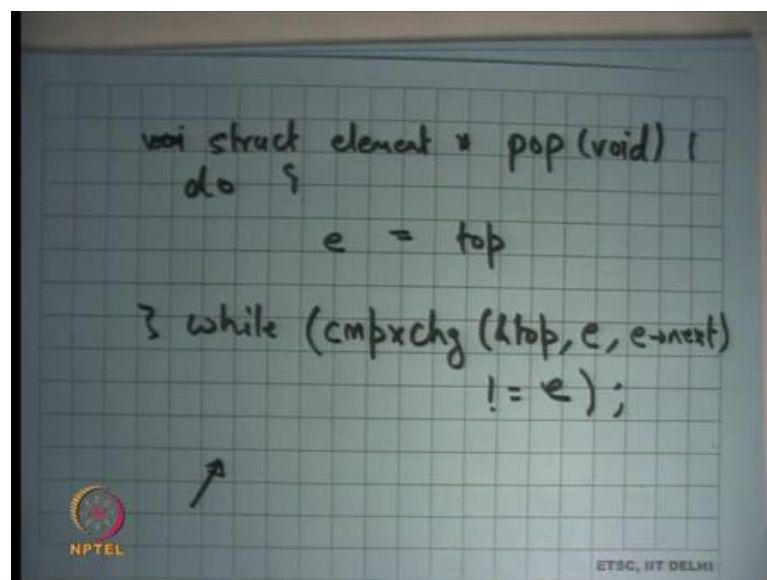 struct element * pop (void) {
do {
e = top
} while (cmpxchg (&top, e, e→next)
!= e);
NPTEL
ETSC, IIT DELHI